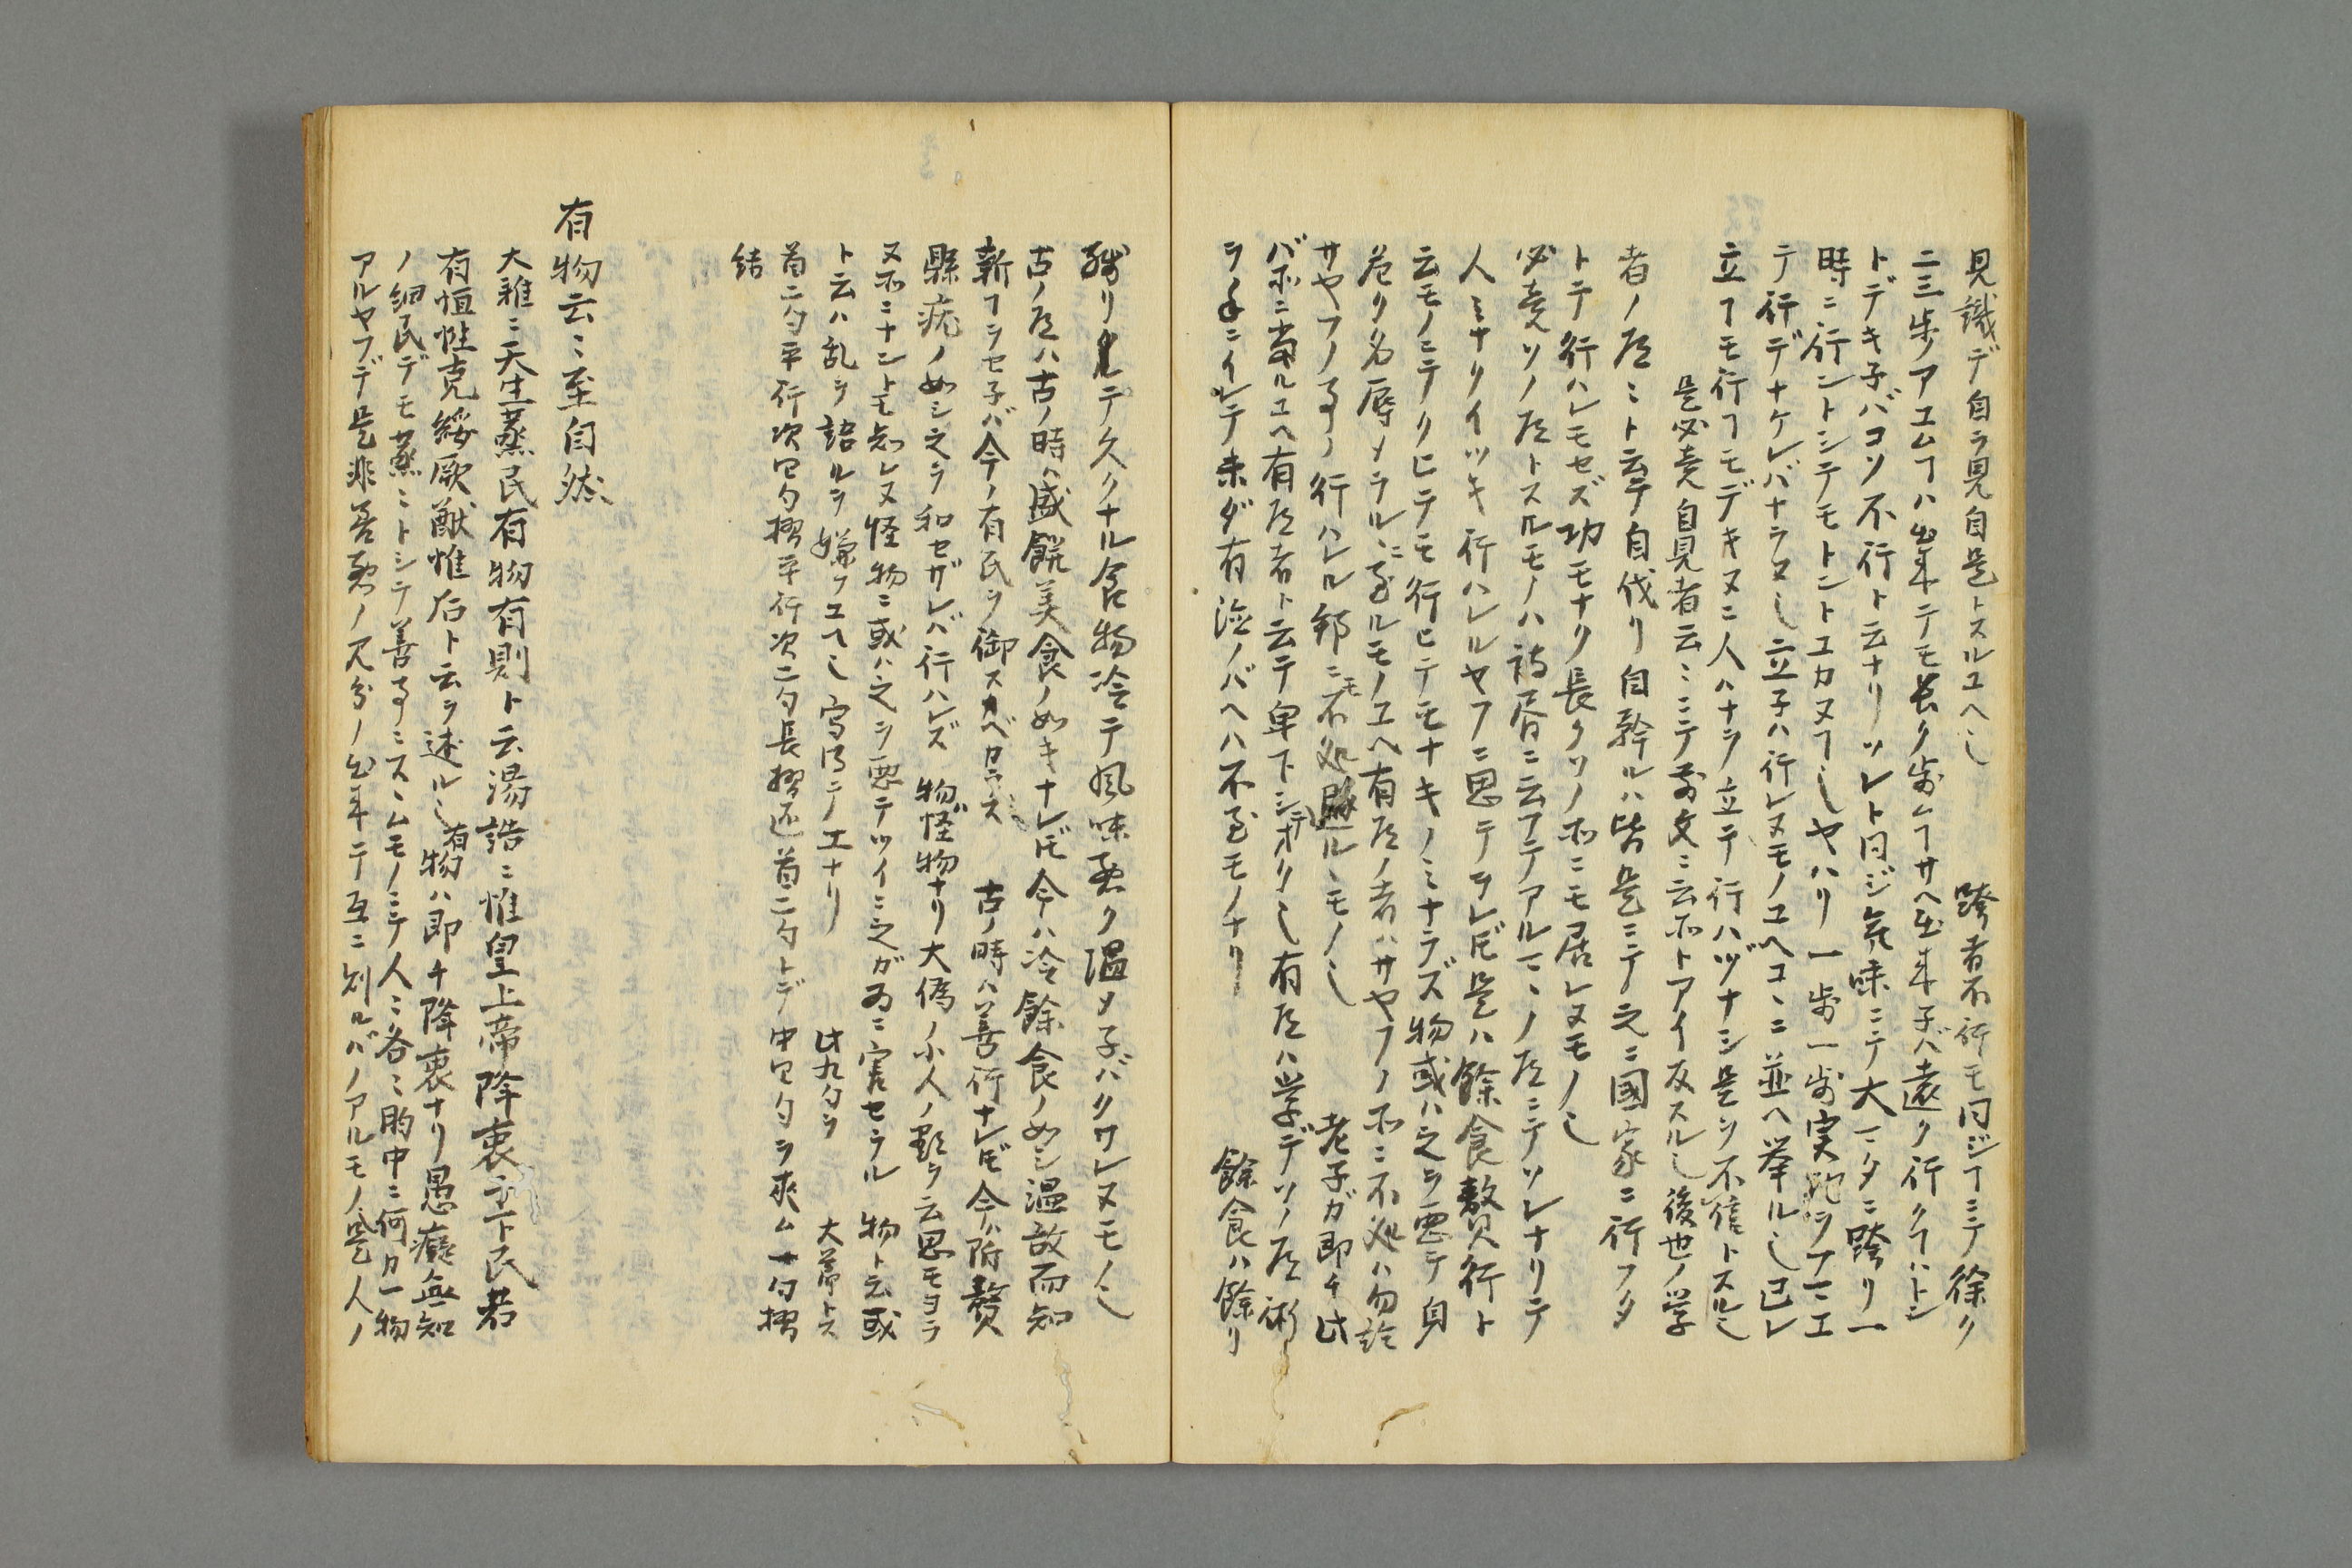 見識デ自ラ見自是トスルユヘ也 跨者不行モ同ジヿニテ徐ク
二三歩ノアユムヿハ出来テモ長ク歩ムヿサヘ出来子バ遠ク行クヿハトン
トデキ子バコソ不行ト云ナリソレト同ジ気味ニテ大ニタニ跨リ一
時ニ行ントシテモトントユカヌヿ也ヤハリ一歩一歩実地ヲフマエ
テ行デナケレバナラヌ也立子ハ行レヌモノユヘコヽニ並ヘ挙ル也已レ
立ヿモ行ヿモデキヌニ人ハナヲ立テ行ハヅナシ是ヲ不信トスル也
是必竟自見者云〻ニテ前文ニ云所トアイ反スル也後世ノ学
者ノ道〻ト云テ自伐リ自矜ルハ皆是ニテ之ニ國家ニ行フタ
トテ行ハレモセズ功モナク長クソノ所ニモ居レヌモノ也
必竟ソノ道トスルモノハ 云フテアル ノ道ニテソレナリテ
人ミナクイツキ行ハレルヤフニ思テヲレ𪜈是ハ餘食贅行ト
云モノニテクヒテモ行ヒテモナキノミナラズ物或ハ之ヲ悪テ身
危ク名辱メラルヽニ至ルモノユヘ有道ノ者ハサヤフノ所ニ不処ハ勿論
サヤフノ事ノ行ハレル邦ニモ不処 ルヽモノ也 老子ガ即チ此
バ所ニ当ルユヘ有道者ト云テ卑下シテオク也有道ハ学デソノ道術
ヲ手ニイレテ未ダ有 ノバヘハ不至モノナリ 餘食ハ餘リ
残リタルテ久クナル食物冷テ風味悪ク温メ子バクワレヌモノ也
古ノ道ハ古ノ時ハ盛饌美食ノ如キナレ𪜈今ハ冷餘食ノ如シ温故而知
新ヿヲセ子バ今ノ有民ヲ御スベカラズ 古ノ時ハ善行ナレ𪜈今ハ附贅
縣疣ノ如シ之ヲ和セザレバ行ハレズ 物ハ怪物ナリ大偽ノ小人ノ類ヲ云思モヨラ
ヌ所ニナントモ知レヌ怪物ニ或ハ之ヲ悪テツイニ之ガ為ニ害セラル 物ト云或
ト云ハ乱ヲ語ルヲ嫌フユヘ也写得テ工ナリ 此九句ヲ 大帯トス
首二句平行次四句摺平行次二句長摺还首二句トデ中四句ヲ夾ム一句摺
結
有物云〻至自然
大雅ニ天生蒸民有物有則ト云湯誥ニ惟皇上帝降衷于下民若
有恒性克綏厥猷惟后ト云ヲ述ル也有物物ハ即チ降衷ナリ愚癡無知
ノ細民デモ蒸〻トシテ善事ニスヽムモノニテ人〻各〻胸中ニ何カ一物
アルヤフデ是非善悪ノ ノ出来テ互ニ別ルバノアルモノ是人ノ